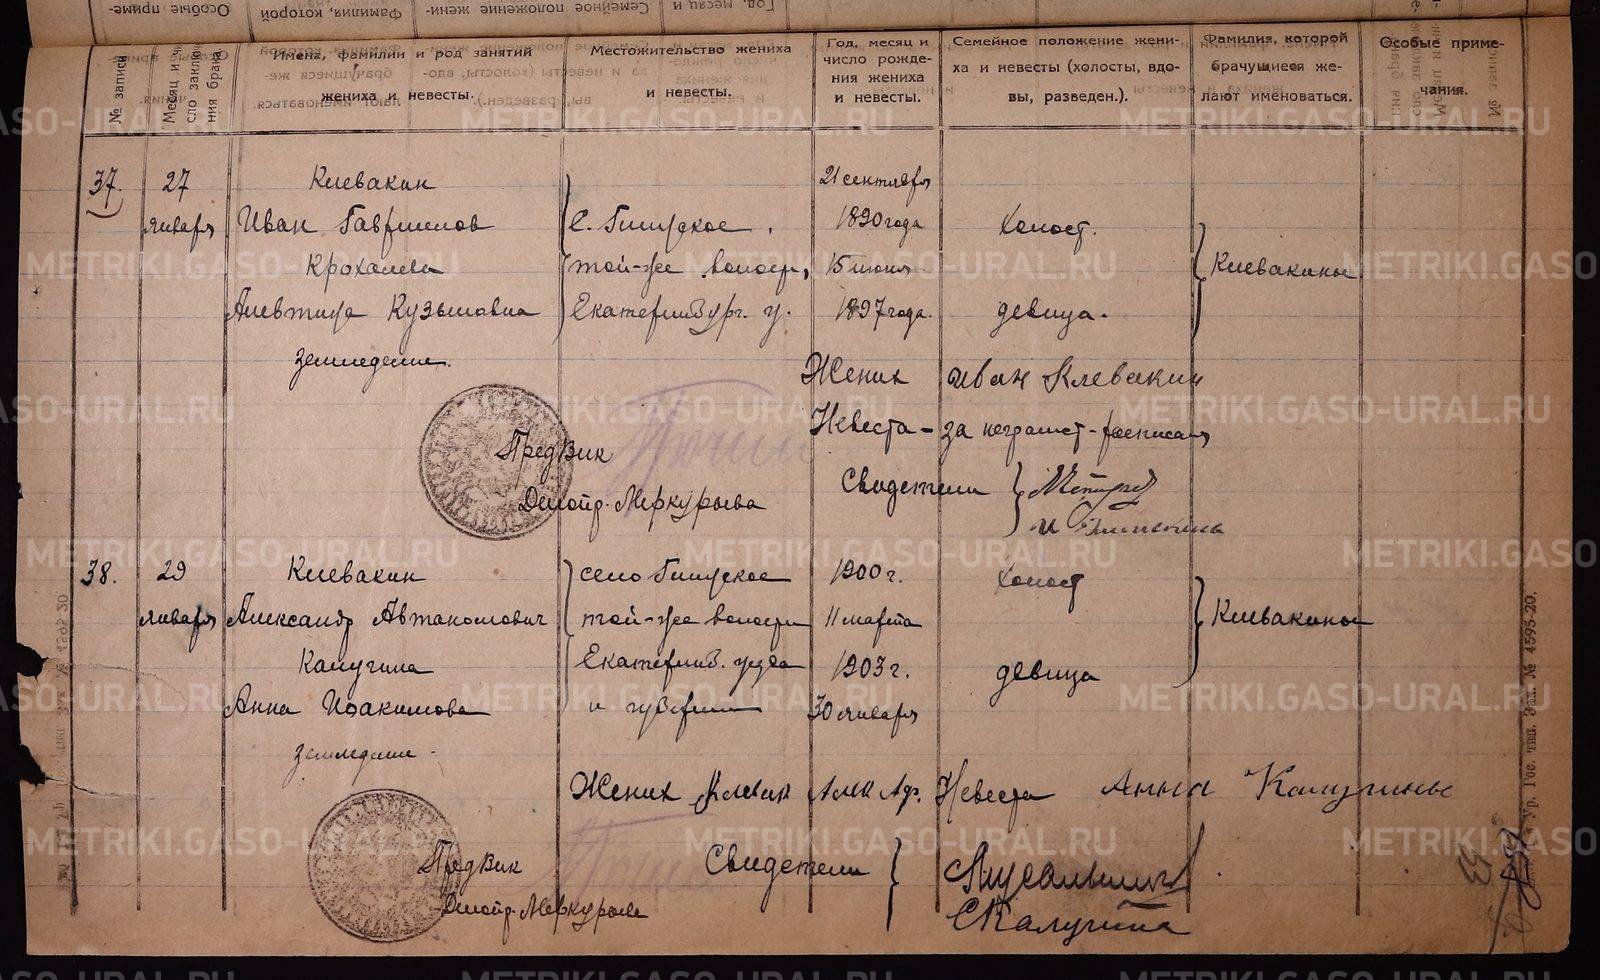 № записи
Месяц и чи-
сло заклю-
ния брака
Имена, фамилии и род занятий
жениха и невесты.
Местожительство жениха
и невесты.
Год, месяц и
число рожде-
ния жениха
и невесты.
Семейное положение жени-
ха и невесты (холосты, вдо-
вы, разведен.).
Фамилия, которой
брачущиеся же-
лают именоваться.
Особые приме-
чания.
37.
27
января
Клевакин
Иван Гаврилов
Крохалева
Алевтина Кузьмовна
земледелие.
той-же волости,
Екатеринбург. у.
21 сентября
1890 года
15 июня
1897 года.
холост.
девица.
Клевакины
Жених Иван Клевакин
Невеста - за неграмот-
Свидетели
и
ПредВик
Делопр. Меркурьева
38.
29
января
Клевакин
Александр Автаномович
Калугина
Анна Иоакимова
земледелие -
село
той-же волости
Екатеринб. уезда
и губернии
1900 г.
11 марта
1903 г.
30 января
холост
девица
Клевакины
Жених Клевак Алек Ар. Невеста Анна
Свидетели
Калугина
ПредВик
Делопр. Меркурьева
Ур. Гос. тип. Зак. № 4595-20.
METRIKI.GASO-URAL.RU